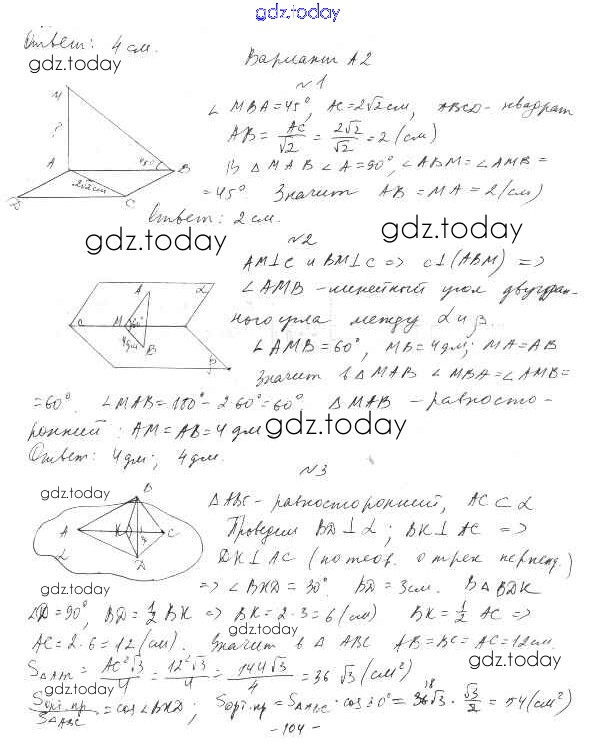 gdz.today
Ответ: 4 см.
gdz.today
Вариант А2
№1
∠MBA=45°, AC=2√2 см, ABCD- квадрат
AB = AC/√2 = 2√2/√2 = 2 (см)
В △ MAB ∠A=90°, ∠ABM=∠AMB=
=45°. Значит AB=MA=2(см)
Ответ: 2 см.
M
A
45°
B
2√2 см
C
gdz.today
gdz.today
№2
AM⊥c и BM⊥c => c⊥(ABM) =>
∠AMB - линейный угол двугран-
ного угла между α и β.
∠AMB=60°, MB=4дм; MA=AB
Значит в △MAB ∠MBA=∠AMB=
=60°. ∠MAB=180°-2·60°=60°. △MAB - равносто-
ронний: AM=AB=4 дм
Ответ: 4дм; 4дм.
A
α
c
M
60°
4дм
B
β
gdz.today
№3
gdz.today
△ABC- равносторонний, AC⊂α
Проведем BD⊥α; BK⊥AC =>
DK⊥AC (по теор. о трех перпенд.)
=> ∠BKD=30°. BD=3см. В△BDK
B
A
K
C
α
gdz.today
∠D=90°, BD=1/2 BK => BK=2·3=6(см) BK=1/2 AC =>
gdz.today
AC=2·6=12(см). Значит в △ ABC AB=BC=AC=12см.
S△ABC = AC²√3/4 = 12²√3/4 = 144√3/4 = 36√3(см²)
gdz.today
gdz.today
Sорт.пр/S△ABC = cos∠BKD; Sорт.пр=S△ABC·cos30°=36√3·√3/2=54(см²)
18
-104-